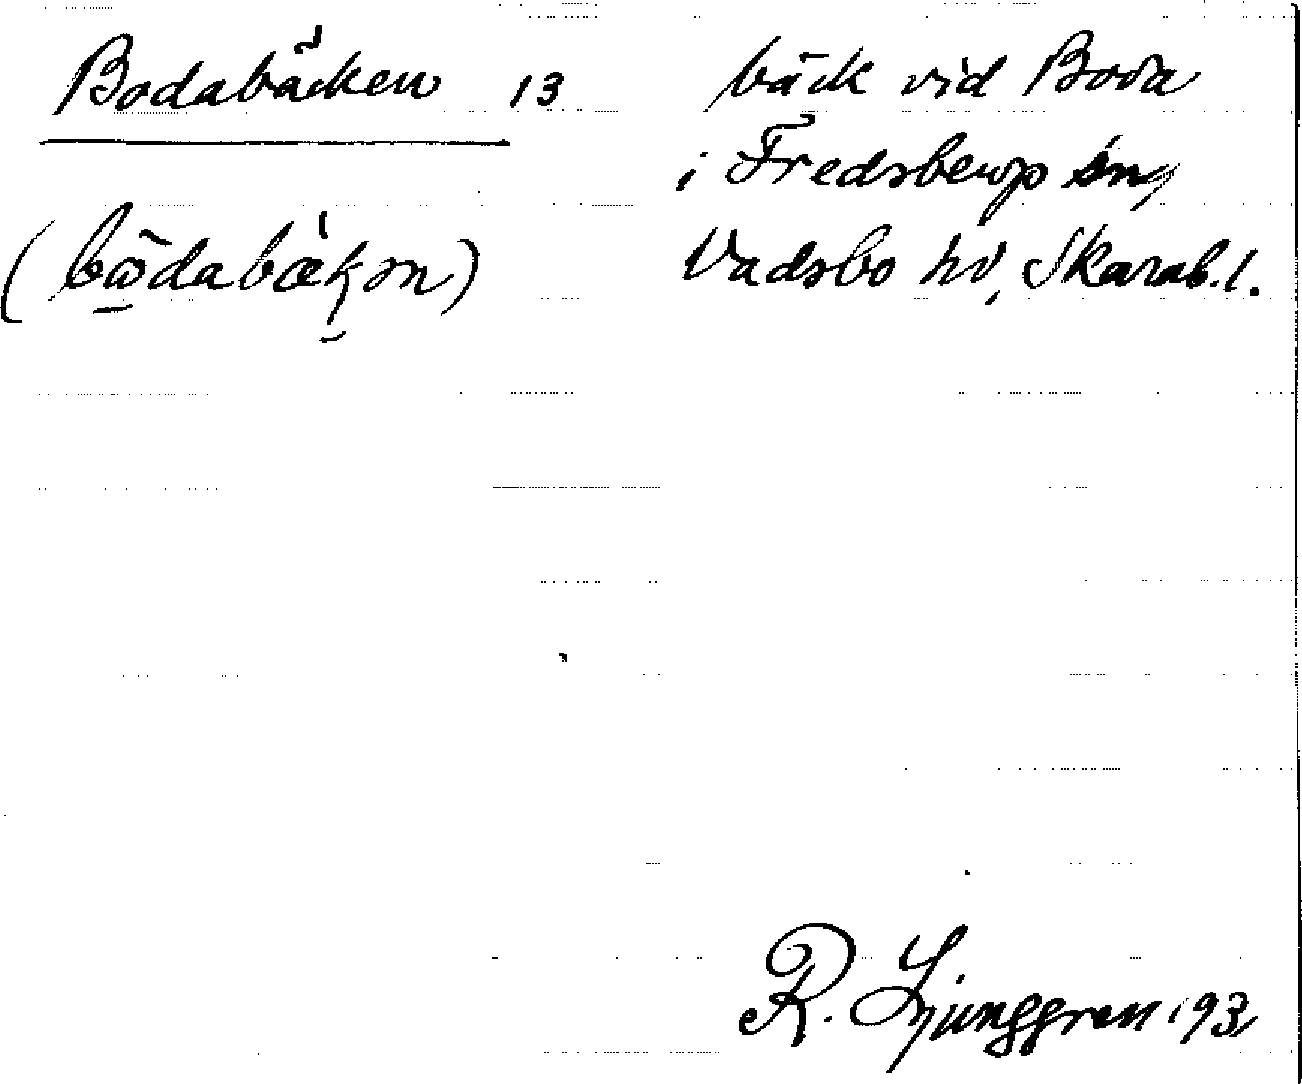 Bodabäcken 13
(bω̄dabækən)
bäck vid Boda
i Fredsbergs sn,
Vadsbo hd, Skarab.l.
R. Ljunggren 193